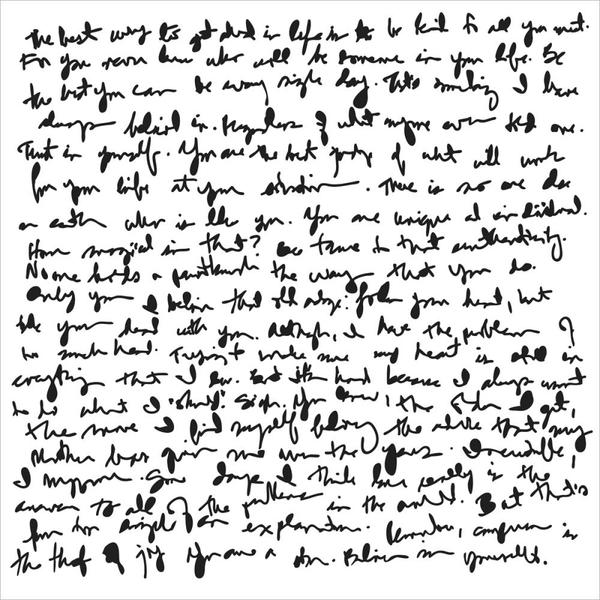 The best way to get ahead in life is to be kind to all you meet.
For you never know who will be someone in your life. Be
the best you can be every single day. It's something I have
always believed in. Regardless of what anyone ever told me.
Trust in yourself. You are the best judge of what will work
for you life at your situation. There is no one else
on earth who is like you. You are unique and individual.
How magical is that? Be true to that authenticity.
No one holds a the way that you do.
Only you. I believe that old adage: follow your heart, but
take your head with you. Although, I have the problem of
too much heart. Trying to make sure my heart is still in
everything that I do. But it's hard because I always want
to do what I "should". Sigh. You know, the older I get,
the more I find myself following the advice that my
Mother has given me over the years. Incredible,
I suppose. Some days I think love really is the
answer to all of the problems in the world. But that's
far too simple of an explanation. Remember, comparison is
the thief of joy. You are a star. Believe in yourself.